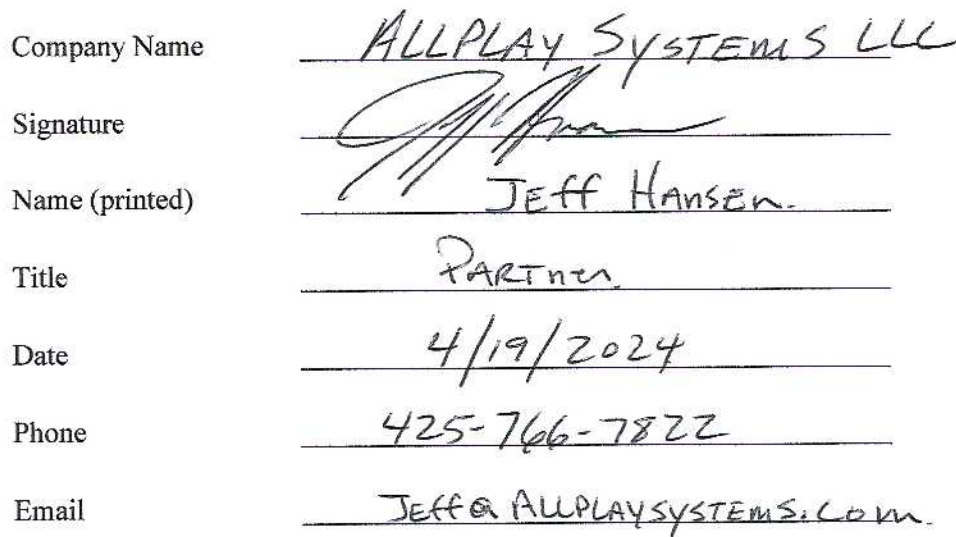 Company Name ALLPLAY SYSTEMS LLC
Signature
Name (printed) JEFF HANSEN.
Title PARTNER
Date 4/19/2024
Phone 425-766-7822
Email JEFF@ALLPLAYSYSTEMS.COM